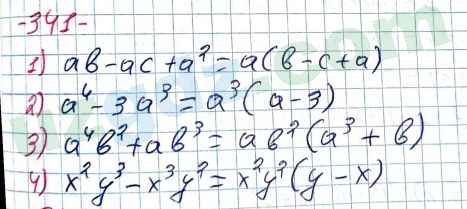 -341-
1) ab-ac+a²=a(b-c+a)
2) a⁴-3a³=a³(a-3)
3) a⁴b²+ab³=ab²(a³+b)
4) x²y³-x³y²=x²y²(y-x)